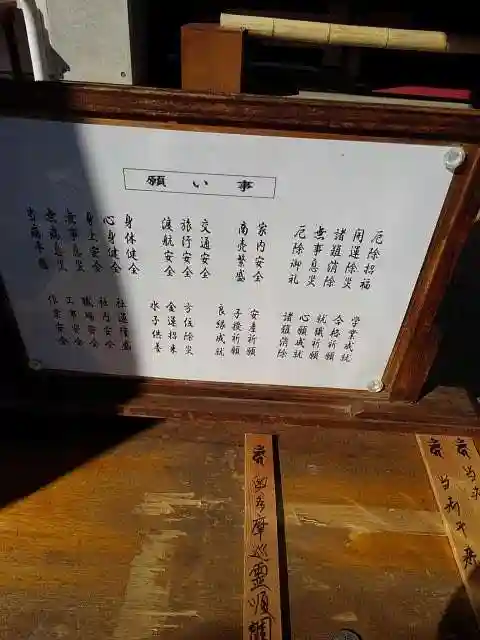 願い事
厄除招福
開運除災
諸難消除
無事息災
厄除御礼
家内安全
商売繁盛
交通安全
旅行安全
渡航安全
身体健全
心身健全
身上安全
無事息災
無病息災
当病平癒
学業成就
合格祈願
就職祈願
心願成就
諸難消除
安産祈願
子授祈願
良縁成就
方位除災
金運招来
水子供養
社運隆盛
社内安全
職場安全
工事安全
作業安全
多摩
霊
当病平癒